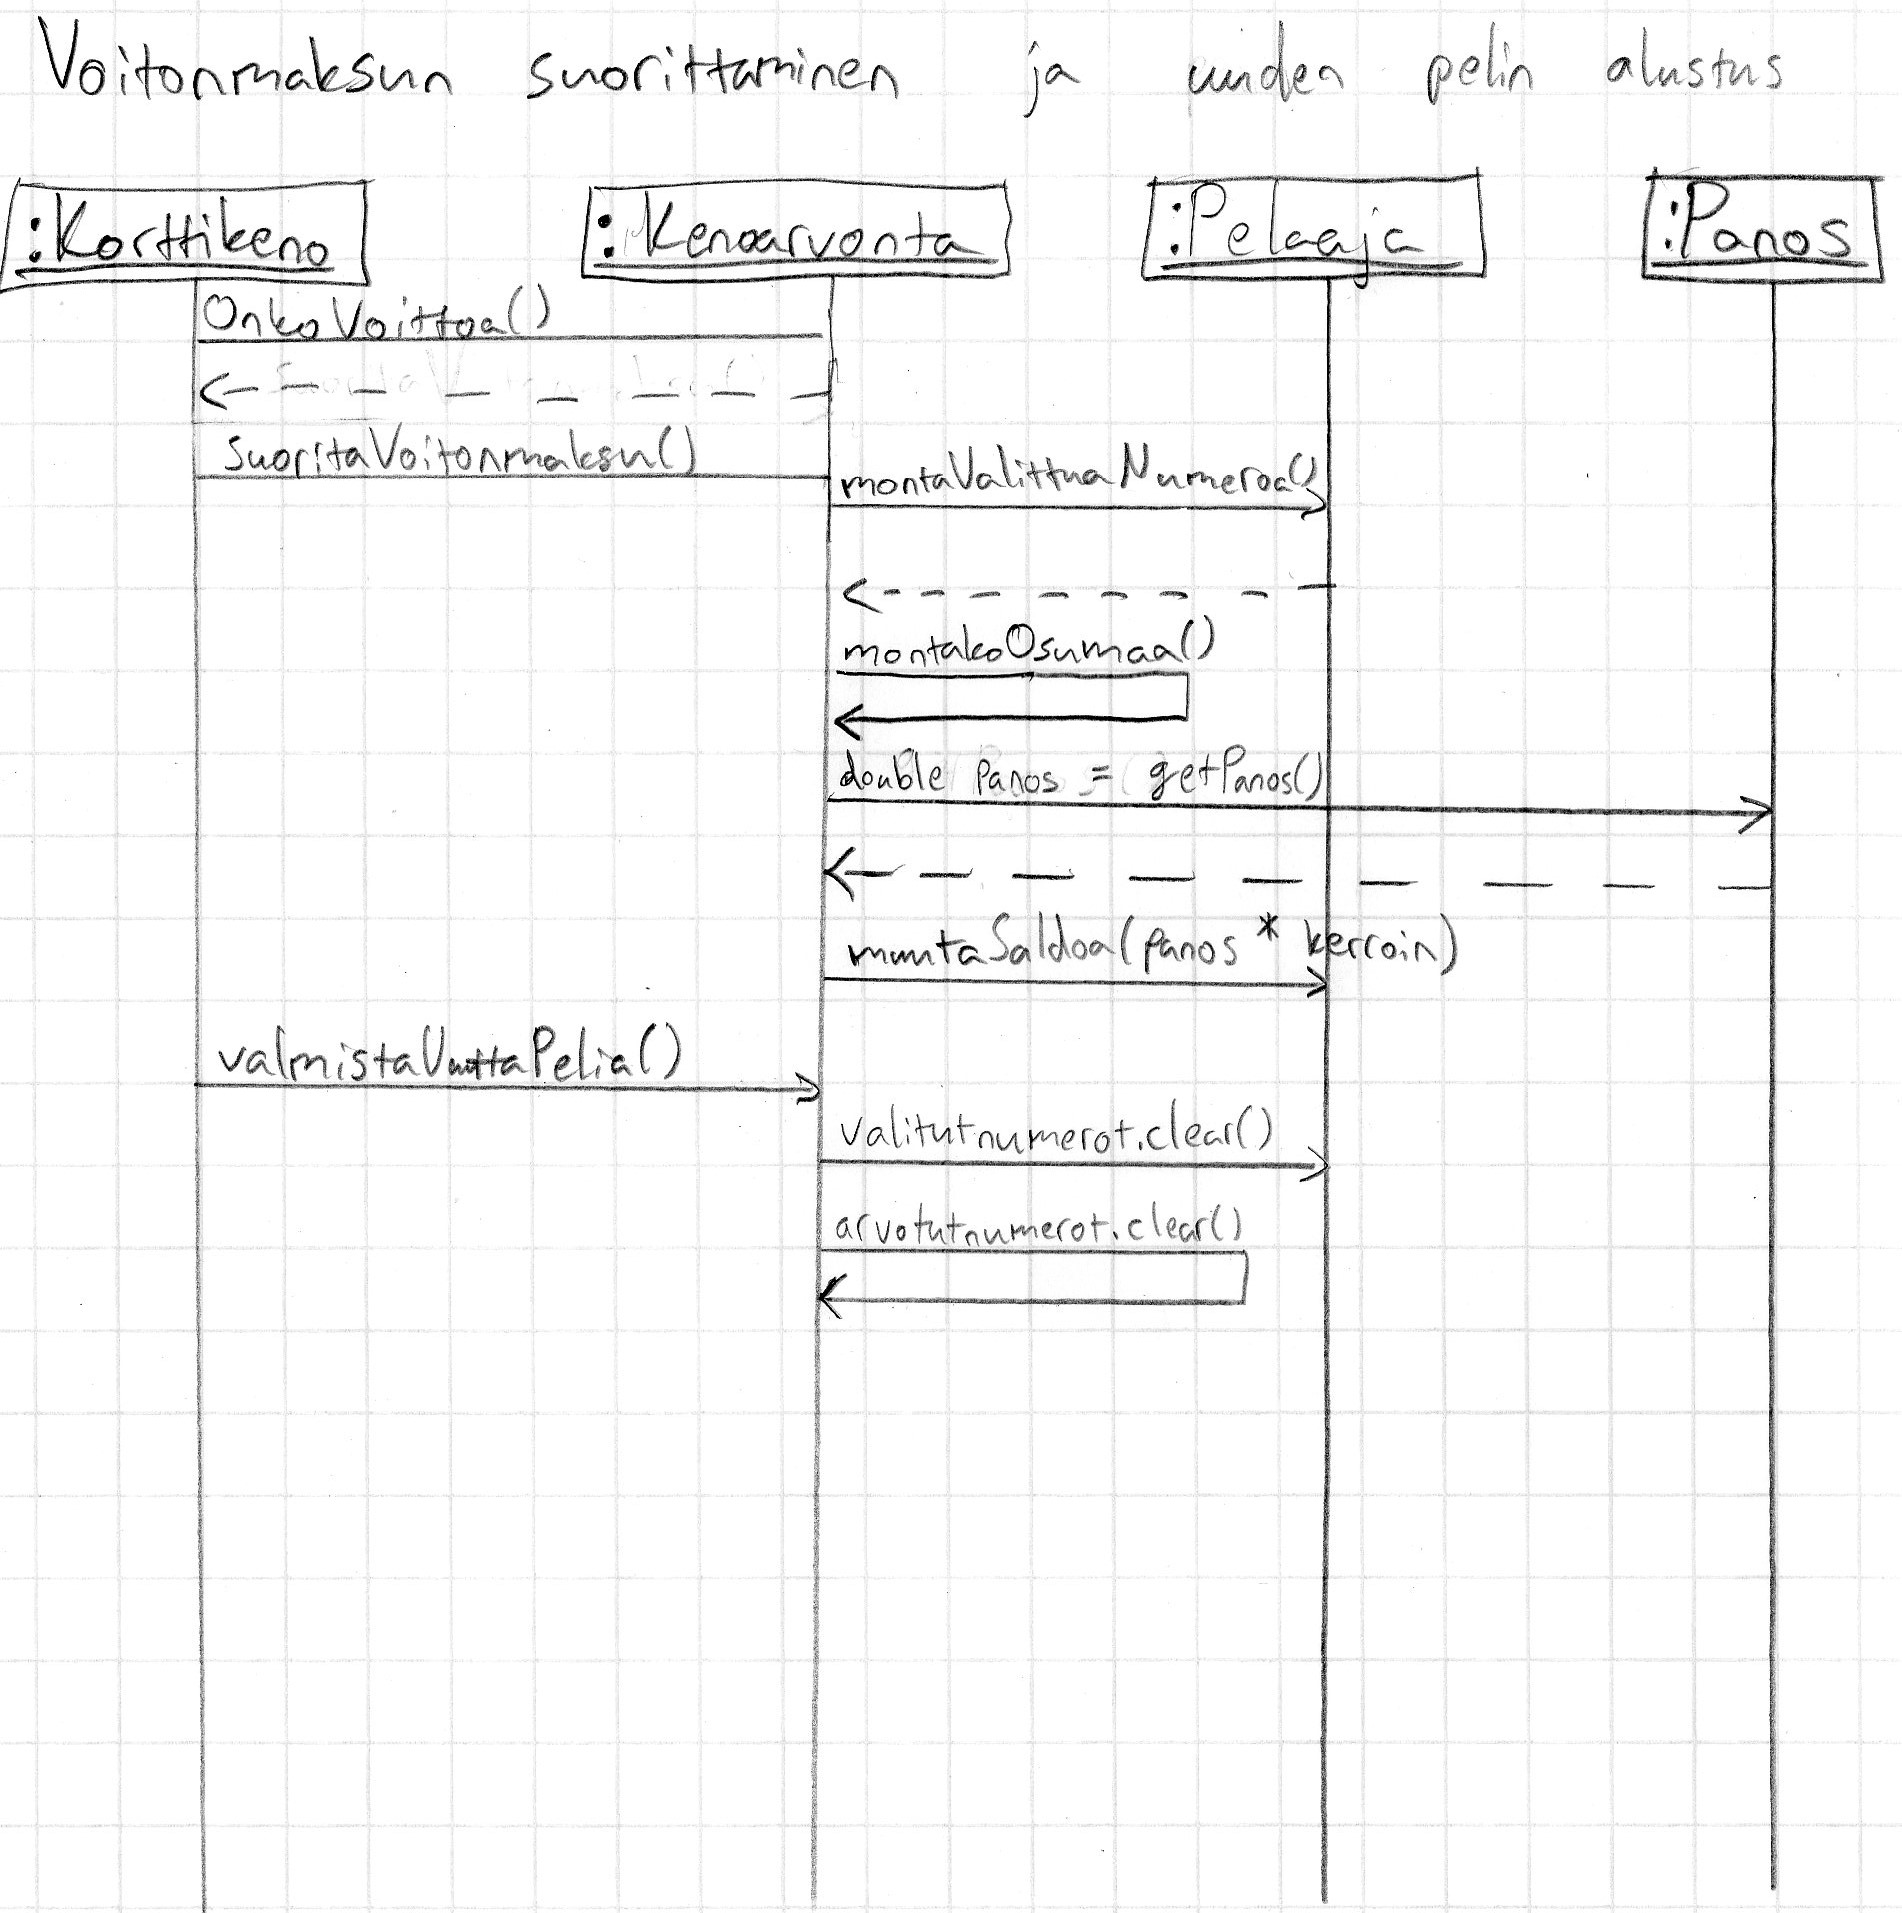 Voitonmaksun suorittaminen ja uuden pelin alustus
:Korttikeno :Kenoarvonta :Pelaaja :Panos
OnkoVoittoa()
suoritaVoitonmaksu()
montaValittuaNumeroa()
montakoOsumaa()
double panos = getPanos()
muutaSaldoa(panos * kerroin)
valmistaUuttaPelia()
valitutnumerot.clear()
arvotutnumerot.clear()